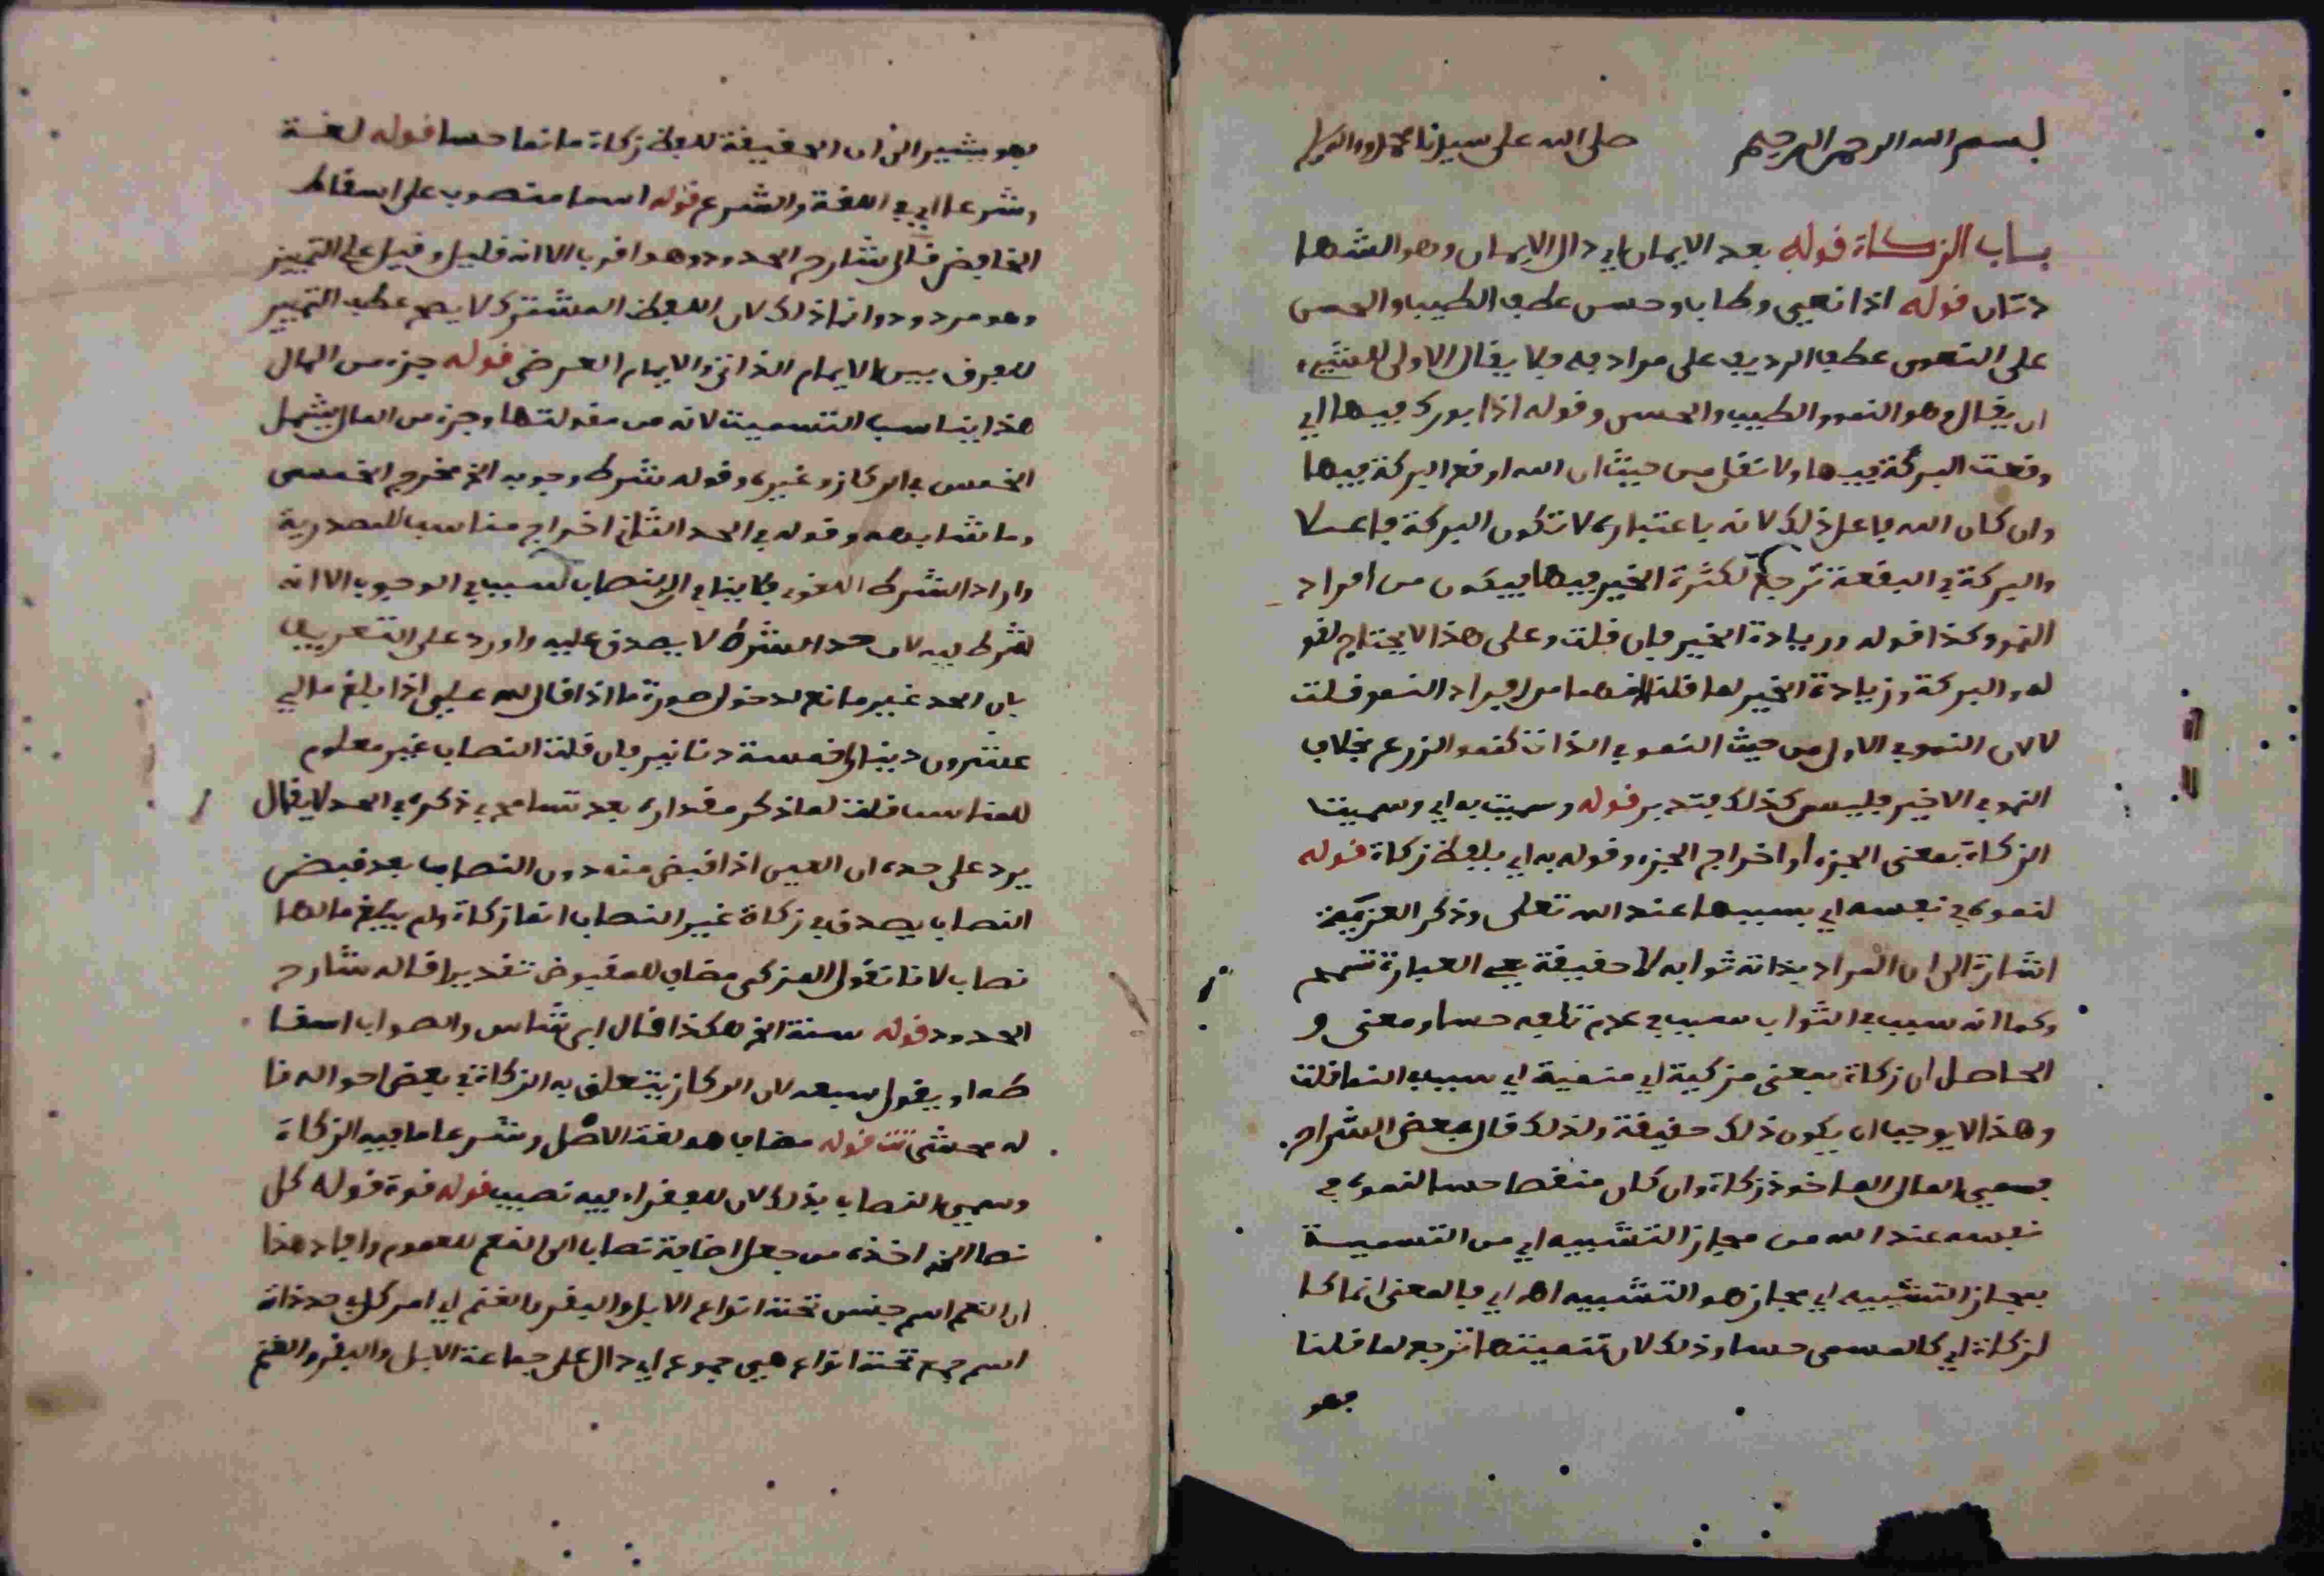 بسم الله الرحمن الرحيم صلى الله على سيدنا محمد وءاله
باب الزكاة قوله بعد الايمان اي دال الايمان وهو الشها
دتان قوله اذا نمى وطاب وحسن عطف الطيب والحسن
على النمو من عطف الرديف على مرادفه فلا يقال الاولى للشيء
ان يقال وهو النمو والطيب والحسن وقوله اذا بورك فيها اي
وقعت البركة فيها ولا تقل من حيث ان الله اوقع البركة فيها
وان كان الله فاعل ذلك لانه باعتباره لا تكون البركة فاعلا
والبركة في البقعة ترجع لكثرة الخير فيها فيكون من افراد
النمو وكذا قوله وزيادة الخير فان قلت وعلى هذا لا يحتاج لقو
له والبركة وزيادة الخير لما قلنا انهما من افراد النمو قلت
لا لان النمو في الاول من حيث النمو في الذات كنمو الزرع بخلاف
النمو في الاخير فليس كذلك فتدبر قوله وسميت به اي وسميت
الزكاة بمعنى الجزء او اخراج الجزء وقوله به اي بلفظ زكاة قوله
لنموه في نفسه اي بسببها عند الله تعلى وذكر العزية
اشارة الى ان المراد بذاته ثوابه لا حقيقة ففي العبارة تسمح
وكما انه سبب في الثواب سبب في عدم تلفه حسا ومعنى و
الحاصل ان زكاة بمعنى مزكية اي منمية اي سبب النما قلت
وهذا لا يوجب ان يكون ذلك حقيقة ولذلك قال بعض الشراح
فسمي المال الماخوذ زكاة وان كان منقصا حسا لنموه في
نفسه عند الله من مجاز التشبيه اي من التسمية
بمجاز التشبيه اي مجاز هو التشبيه اه اي فالمعنى انما كا
لزكاة اي كالمسمى حسا وذلك لان تنميتها ترجع لما قلنا
فهو
فهو يشير الى ان الحقيقة للفظ زكاة ما نما حسا قوله لغة
وشرعا اي في اللغة والشرع قوله اسما منصوب على اسقاط
الخافض قال شارح الحدود وهو اقرب الا انه قليل وقيل على التمييز
وهو مردود وانما ذلك لان اللفظ المشترك لا يصح عطف التمييز
للفرق بين الابهام الذاتي والابهام العرضي قوله جزء من المال
هذا يناسب التسمية لانه من مقولتها وجزء من المال يشمل
الخمس في الركاز وغيره وقوله شرط وجوبه الخ مخرج الخمس
وما شابهه وقوله في الحد الثاني اخراج مناسب للمصدرية
واراد الشرط اللغوي فلا ينافي ان النصاب سبب في الوجوب الا انه
شرط فيه لان حد الشرط لا يصدق عليه واورد على التعريف
بان الحد غير مانع لدخول صورة ما اذا قال لله علي اذا بلغ مالي
عشرون دينارا خمسة دنانير فان قلت النصاب غير معلوم
للمناسب قلت لما ذكر مقداره بعد تسامح في ذكره في الحد لا يقال
يرد على حده ان العين اذا قبض منه دون النصاب بعد قبض
النصاب يصدق في زكاة غير النصاب انها زكاة ولم يبلغ مالها
نصاب لانا نقول المزكى مضاف للمقبوض تقديرا قاله شارح
الحدود قوله سنة الخ هكذا قال ابن شاس والصواب اسقا
طه او يقول سبعه لان الركاز يتعلق به الزكاة في بعض احواله قا
له محشي تت قوله مضاف هو لغة الاصل وشرعا ما فيه الزكاة
وسمي النصاب بذلك لان للفقراء فيه نصيب قوله قوة قوله كل
نصاب الخ اخذه من جعل اضافة نصاب الى النعم للعموم وافاد هذا
ان النعم اسم جنس تحته انواع الابل والبقر والغنم اي امر كلي حد ذاته
اسم جمع تحته انواع هي جموع اي دال على جماعة الابل والبقر والغنم